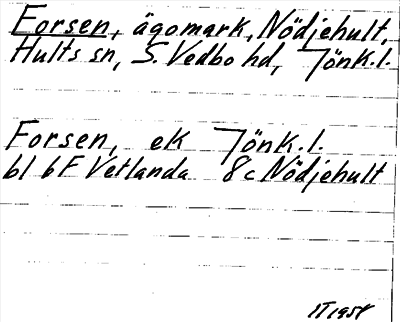 Forsen, ägomark, Nödjehult,
Hults sn, S. Vedbo hd, Jönk.l.
Forsen, ek Jönk.l.
bl 6F Vetlanda 8c Nödjehult
IT 1958